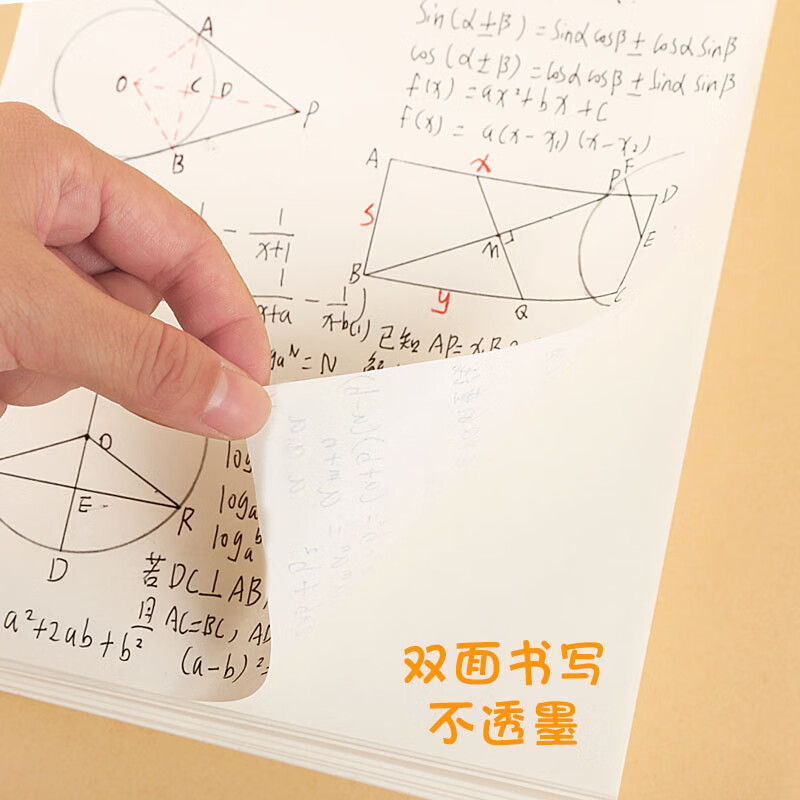 A
O
C
D
P
B
Sin(α±β)=Sinαcosβ±cosαSinβ
cos(α±β)=cosαcosβ±Sinα Sinβ
f(x)=ax²+bx+c
f(x)=a(x-x₁)(x-x₂)
A
x
P
F
D
S
n
E
B
y
Q
C
- 1/(x+1)
1/(x+a) - 1/(x-b(1)
已知 AP=x, B
= N
O
E
R
D
log
loga
loga b
若 DC⊥AB,
且 AC=BC, AD
a²+2ab+b²
(a-b)²=
双面书写
不透墨